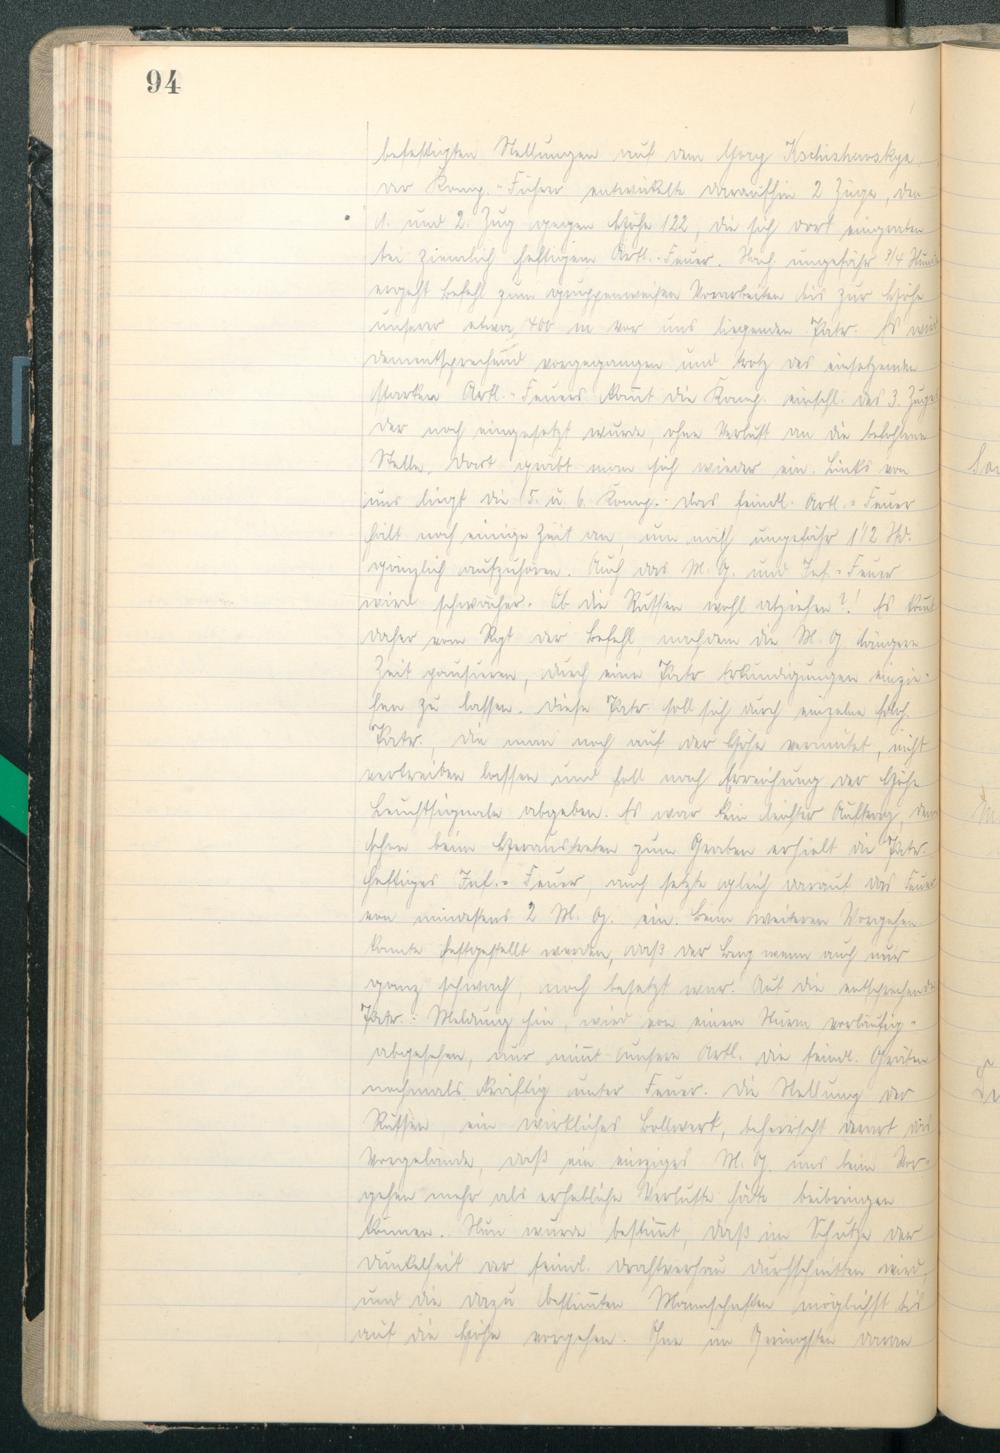 94
befestigten Stellungen auf dem Gorg Kschishowskye.
der Komp.-Führer entwickelte daraufhin 2 Züge, den
1. und 2. Zug gegen Höhe 122, die sich dort eingraben
bei ziemlich heftigem Artl.-Feuer. Nach ungefähr 3/4 Stunde
ergeht Befehl zum gruppenweisen Vorarbeiten bis zur Höhe
unserer etwa 400 m vor uns liegenden Patr. Es wird
dementsprechend vorgegangen und trotz des einsetzenden
starken Artl.-Feuers komt die Komp. einschl. des 3. Zuges
der noch eingesetzt wurde, ohne Verlust an die befohlene
Stelle, dort gräbt man sich wieder ein. Links von
uns liegt die 5. u. 6. Komp. das feindl. Artl.-Feuer
hält noch einige Zeit an, um nach ungefähr 1 1/2 Std.
gänzlich aufzuhören. Auch das M. G. und Inf.-Feuer
wird schwächer. Ob die Russen wohl abziehen?! Es komt
daher vom Rgt der Befehl, nachdem die M. G. längere
Zeit pausieren, durch eine Patr Erkundigungen einzie-
hen zu lassen. Diese Patr. soll sich durch einzelne
Patr., die man noch auf der Höhe vermutet, nicht
vertreiben lassen und soll nach Erreichung der Höhe
Leuchtsignale abgeben. Es war kein leichter Auftrag, denn
schon beim Heraustreten zum Graben erhielt die Patr.
heftiges Inf.-Feuer, auch setzte gleich darauf das Feuer
von mindestens 2 M. G. ein. Beim weiteren Vorgehen
konnte festgestellt werden, daß der Berg wenn auch nur
ganz schwach, noch besetzt war. Auf die entsprechende
Patr.-Meldung hin, wird von einem Sturm vorläufig
abgesehen, nur nimt unsere Artl. die feindl. Gräben
nochmals kräftig unter Feuer. Die Stellung der
Russen, ein wirkliches Bollwerk, beherrscht derart das
Vorgelände, daß ein einziges M. G. uns beim Vor-
gehen mehr als erhebliche Verluste hätte beibringen
können. Nun wurde bestimt, daß im Schutze der
Dunkelheit der feindl. Drahtverhau durchschnitten wird,
und die dazu bestimten Mannschaften möglichst bis
auf die Höhe vorgehen. Ohne im Geringsten daran